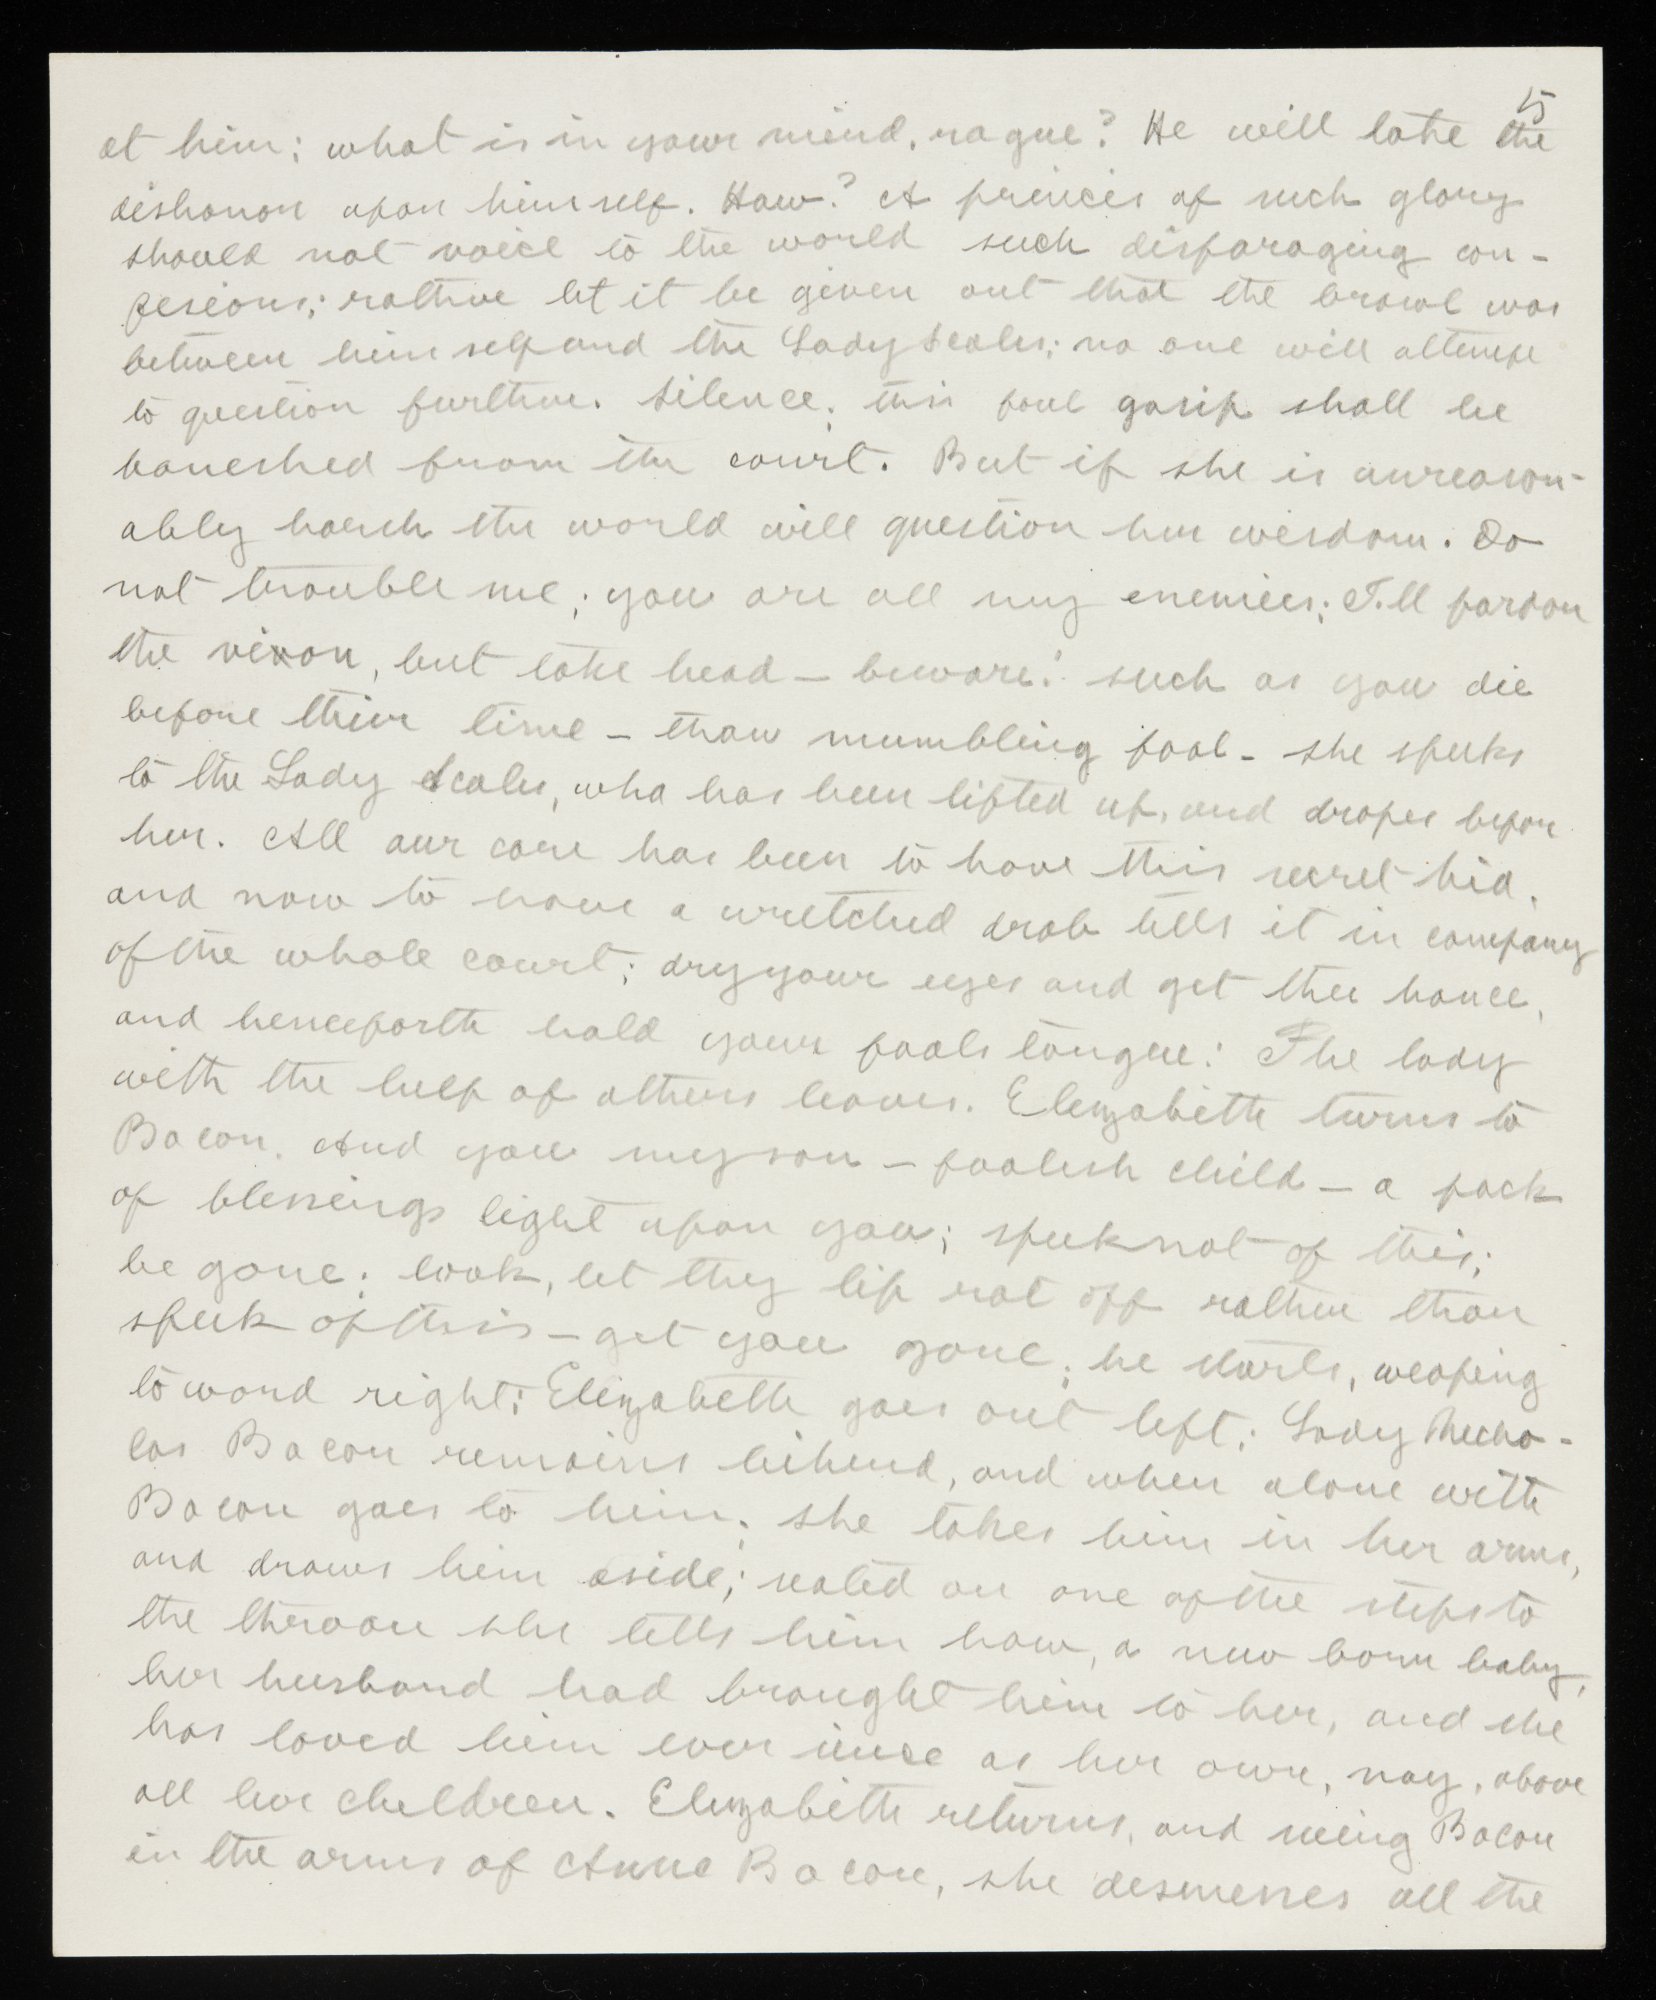 15
at him; what is in your mind, rogue? He will take the
dishonor upon himself. How? A princes of such glory
should not voice to the world such disparaging con-
fesions; rather let it be given out that the brawl was
between himself and the Lady Scales; no one will attempt
to question further. Silence; this foul gosip shall be
baneshed from the court. But if she is unreason-
ably harsh the world will question her wisdom. Do
not trouble me; you are all my enemies; I'll pardon
the vixon, but take head – beware! such as you die
before their time – thow mumbling fool – she speeks
to the Lady Scales, who has been lifted up, and dropes before
her. All our care has been to have this secret hid,
and now to have a wretched drab tells it in company
of the whole court; dry your eyes and get thee hance,
and henceforth hold your fools tongue! The lady
with the help of others leaves. Elezabeth turns to
Bacon. And you my son – foolish child – a pack
of blessings light upon you; speek not of this;
be gone; look, let thy lip rot off rather than
speek of this – get you gone; he starts, weaping
toward right; Elizabeth goes out left; Lady Necho-
las Bacon remains behind, and when alone with
Bacon goes to him; she takes him in her arms,
and draws him aside; seated on one of the steps to
the throne she tells him how, a new born baby,
her husband had brought him to her, and she
has loved him ever since as her own, nay, above
all her children. Elezabeth returns, and seeing Bacon
in the arms of Anne Bacon, she desmesses all the